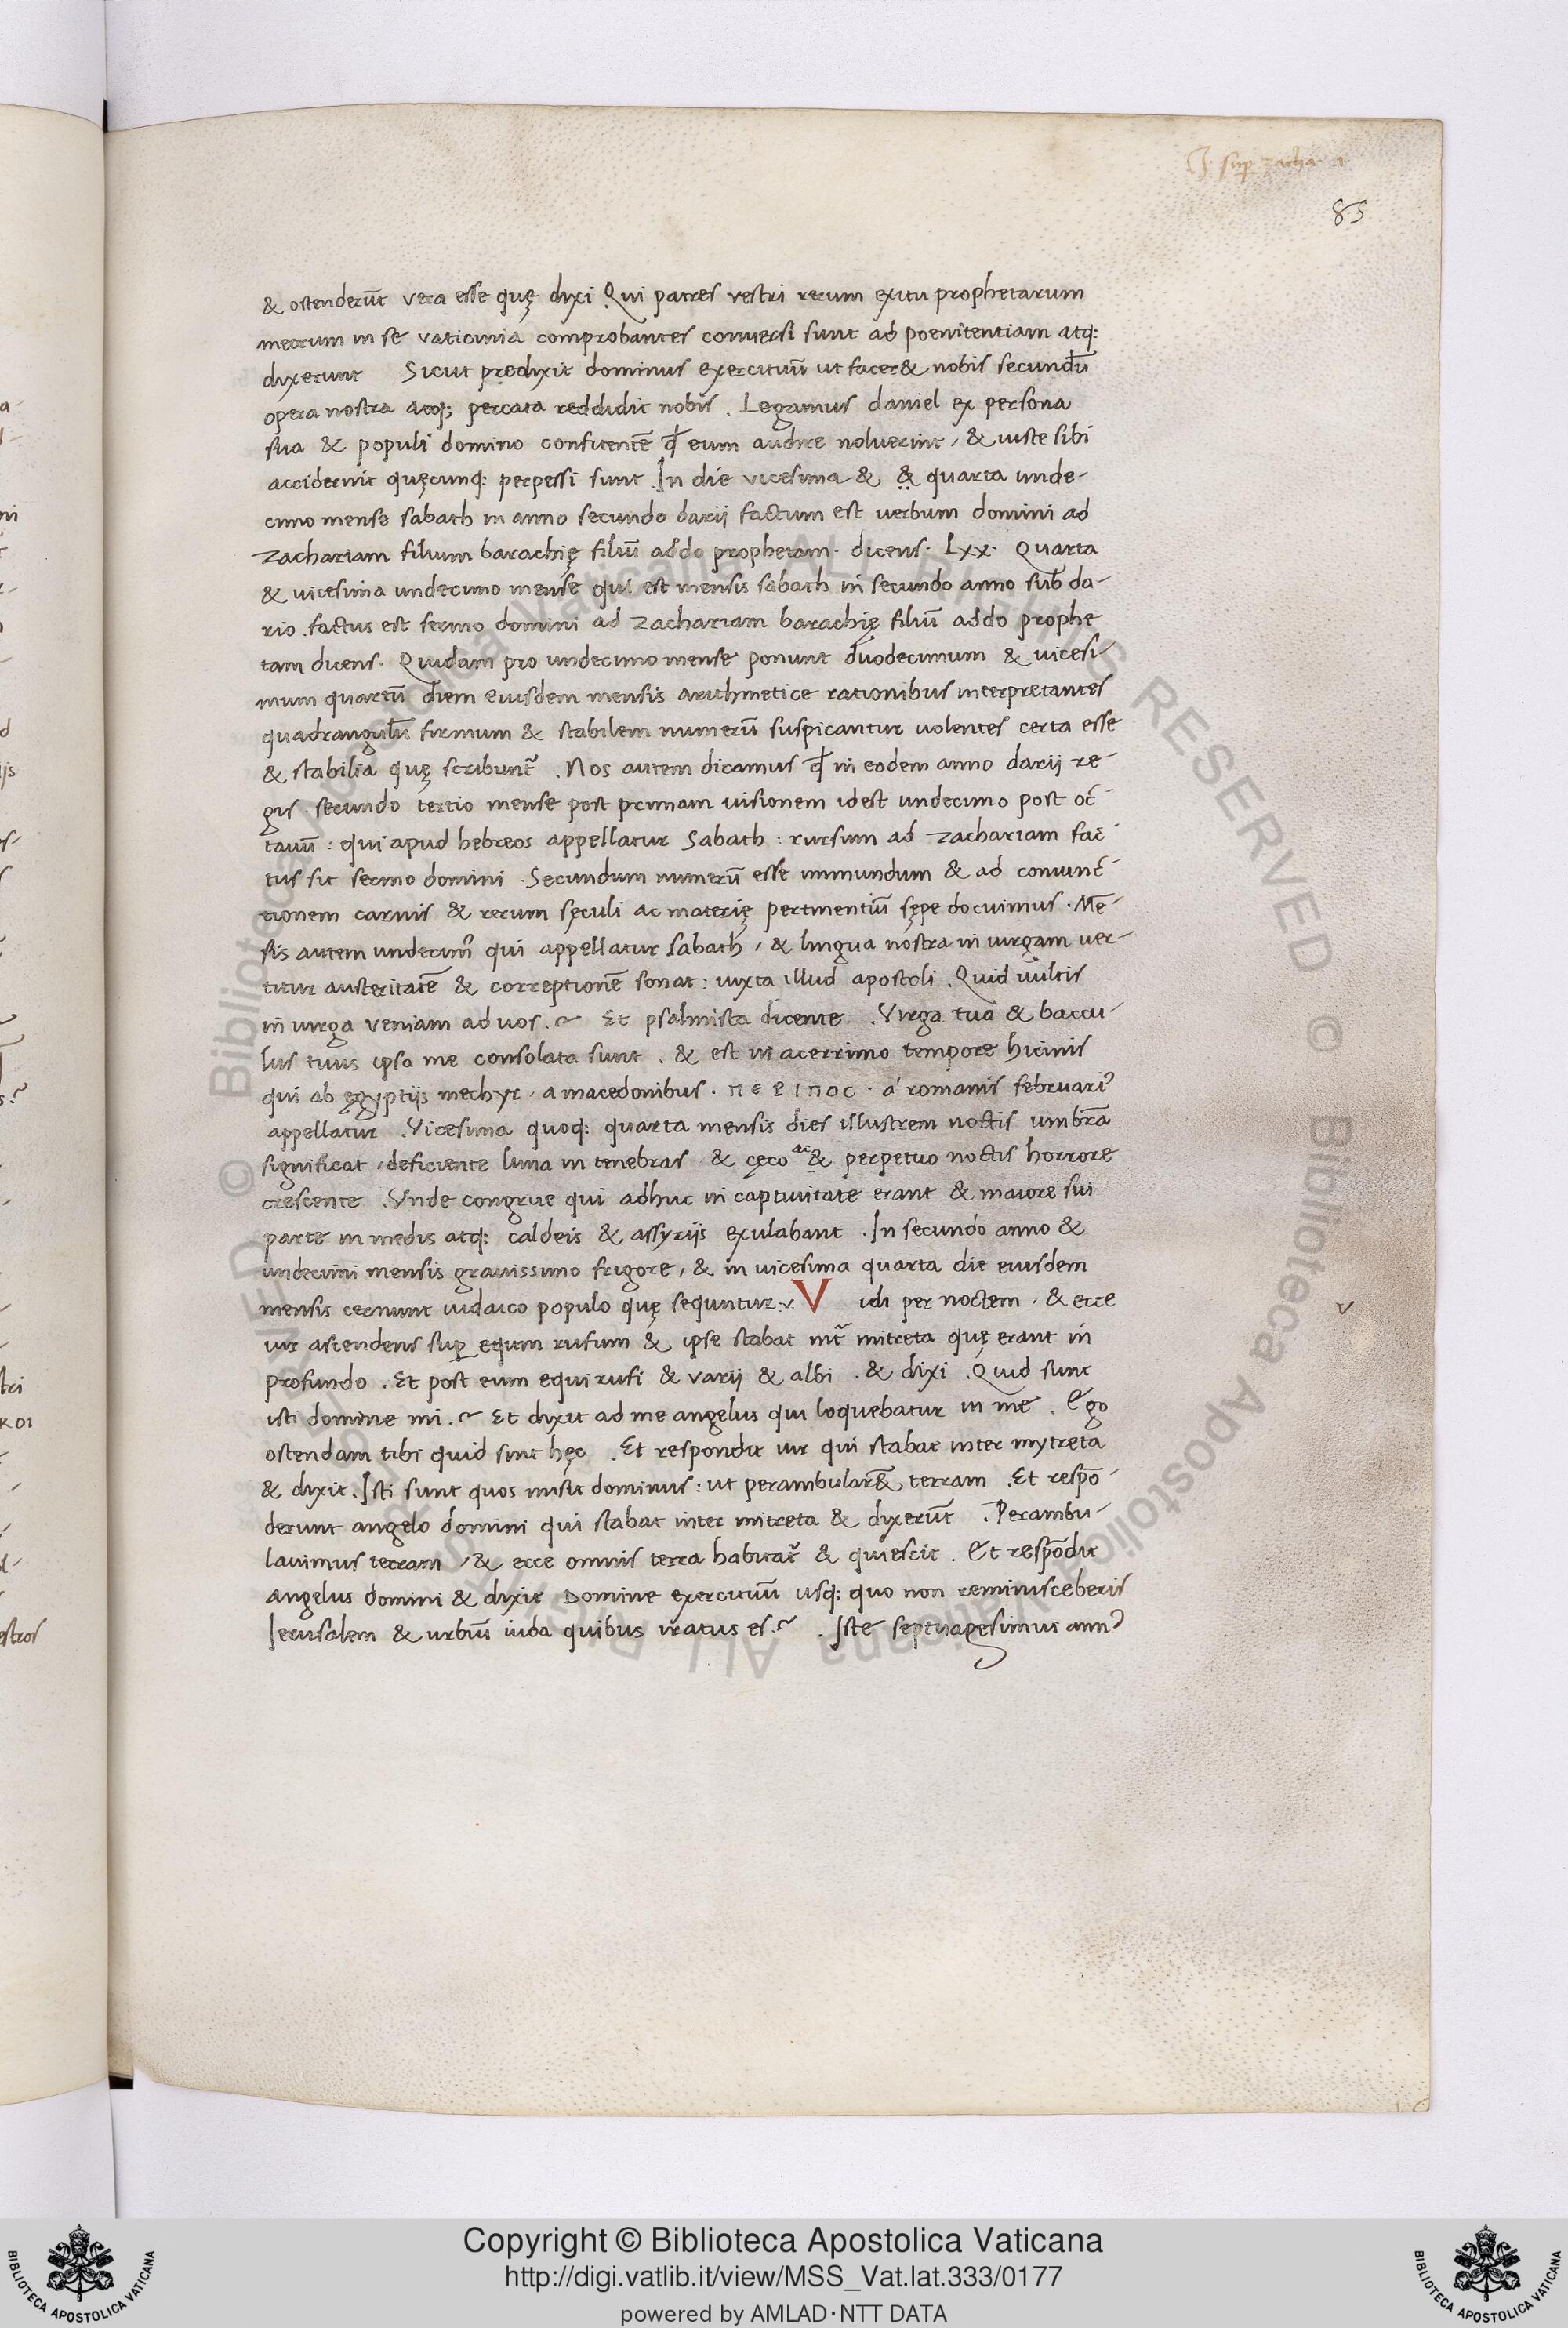 J. sup zacha. 1
85
& ostenderūt vera esse quę dixi Qui patres vestri rerum exitu prophetarum
meorum in se vaticinia comprobantes conuersi sunt ad poenitentiam atq:
dixerunt Sicut prędixit dominus exercituū ut facer& nobis secundū
opera nostra atq; peccata reddidit nobis . Legamus daniel ex persona
sua & populi domino confitentē qđ eum audire noluerint, & iuste sibi
acciderint quęcunq: perpessi sunt . In die vicesima & & quarta unde-
cimo mense sabath in anno secundo darij factum est uerbum domini ad
zachariam filium barachię filiū addo prophetam. dicens. Lxx. Quarta
& uicesima undecimo mense qui est mensis sabath in secundo anno sub da-
rio . factus est sermo domini ad zachariam barachię filiū addo prophe
tam dicens. Quidam pro undecimo mense ponunt duodecimum & uicesi-
mum quartū diem eiusdem mensis arithmetice rationibus interpretantes
quadrangulū firmum & stabilem numerū suspicantur uolentes certa esse
& stabilia quę scribunt᷑ . Nos autem dicamus qđ in eodem anno darij re-
gis . secundo tertio mense post primam uisionem idest undecimo post oc-
tauū : qui apud hebreos appellatur Sabath : rursum ad zachariam fac-
tus sit sermo domini . Secundum numerū esse immundum & ad coniunc-
tionem carnis & rerum sęculi ac materię pertinentiū sępe docuimus . Mē-
sis autem undecim᷒ qui appellatur sabath, & lingua nostra in uirgam uer-
titur austeritatē & correptionē sonat : iuxta illud apostoli . Quid uultis
in uirga veniam ad uos .~ Et psalmista dicente . Virga tua & baccu-
lus tuus ipsa me consolata sunt . & est in acerrimo tempore hiemis
qui ab ęgyptijs mechyr, a macedonibus . ΠΕΡΙΠΟC . á romanis februari᷒
appellatur . Vicesima quoq: quarta mensis dies illustrem noctis umbrā
significat, deficiente luna in tenebras & cęco ac & perpetuo noctis horrore
crescente . Vnde congrue qui adhuc in captiuitate erant & maiore sui
parte in medis atq: caldeis & assyrijs exulabant . In secundo anno &
undecimi mensis grauissimo frigore, & in uicesima quarta die eiusdem
mensis cernunt iudaico populo quę sequntur: v V idi per noctem, & ecce
uir ascendens sup equm rufum & ipse stabat int᷑ mitreta quę erant in
profundo . Et post eum equi rufi & varij & albi . & dixi . Quid sunt
isti domine mi .~ Et dixit ad me angelus qui loquebatur in me . Ego
ostendam tibi quid sint hęc . Et respondit uir qui stabat inter mytreta
& dixit . Isti sunt quos misit dominus : ut perambular&̄ terram . Et respō-
derunt angelo domini qui stabat inter mitreta & dixerūt . Perambu-
lauimus terram, & ecce omnis terra habitat᷑ & quiescit . Et respōdit
angelus domini & dixit Domine exercituū usq; quo non reminisceberis
Jerusalem & urbiū iuda quibus iratus es .~ . Iste septuagesimus ann᷒
v
Copyright © Biblioteca Apostolica Vaticana
http://digi.vatlib.it/view/MSS_Vat.lat.333/0177
powered by AMLAD·NTT DATA